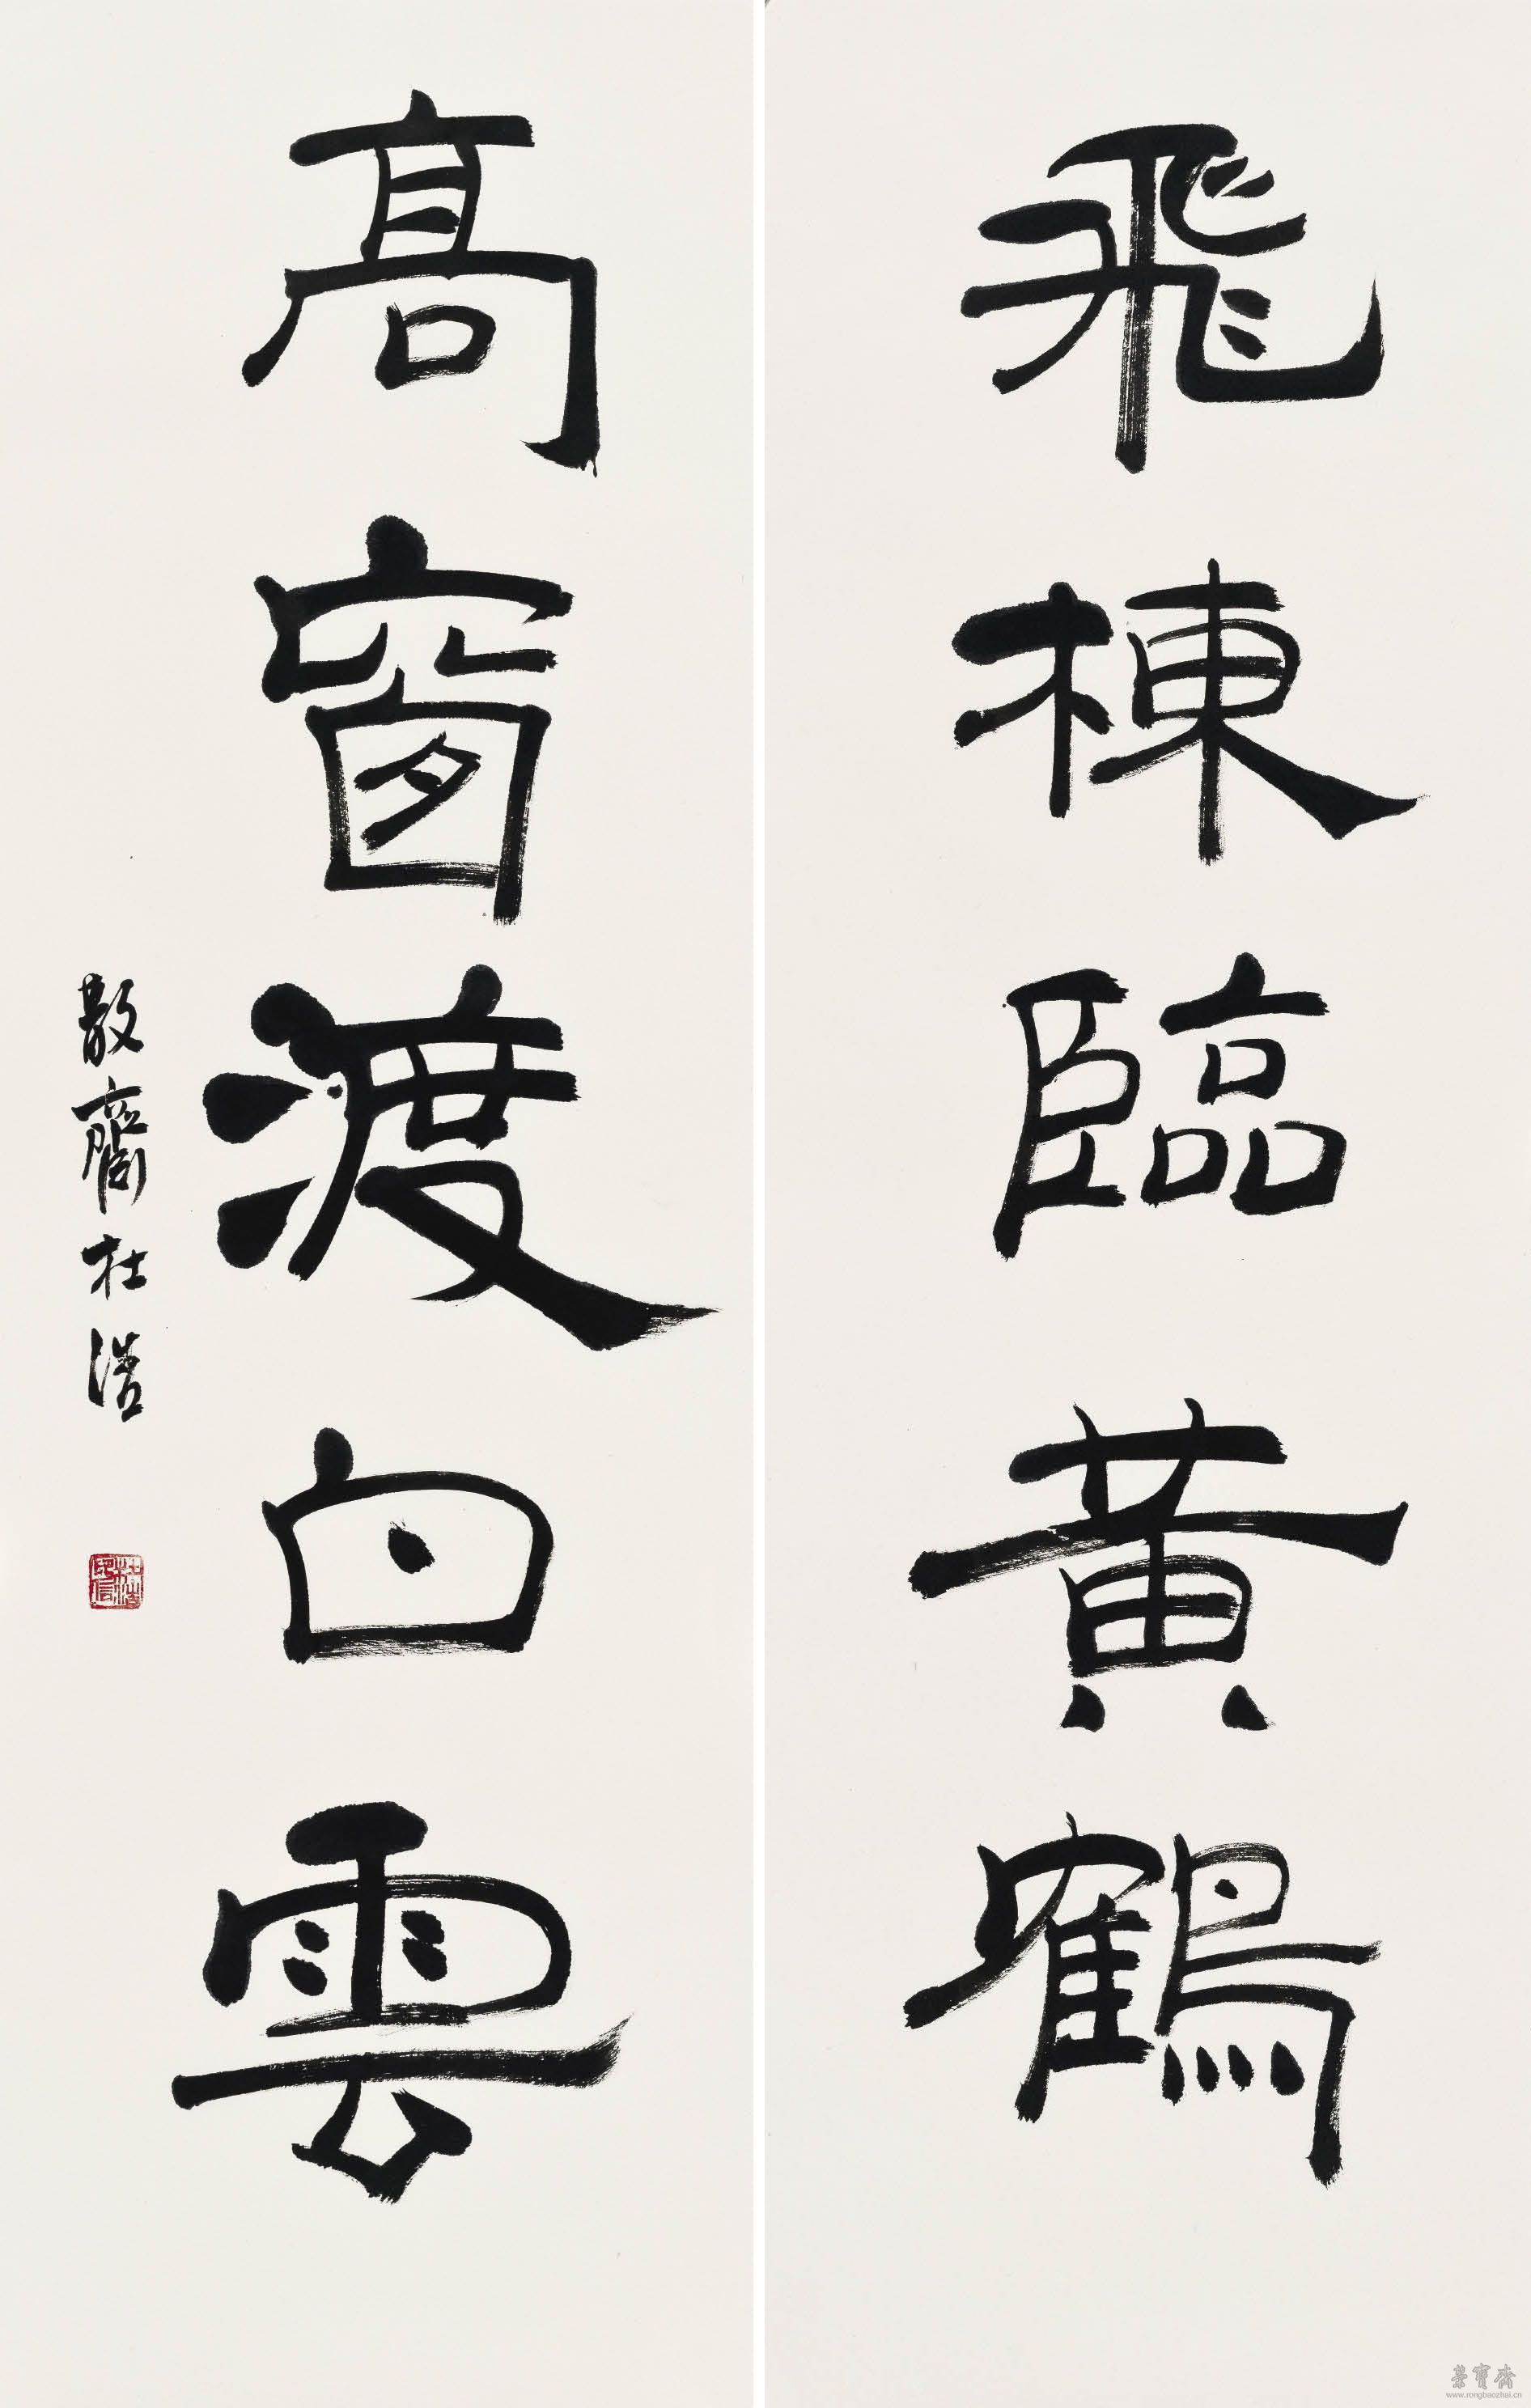 飛棟臨黃鶴
高窗渡白雲
散齋杜浩
榮寶齋
www.rongbaozhai.cn